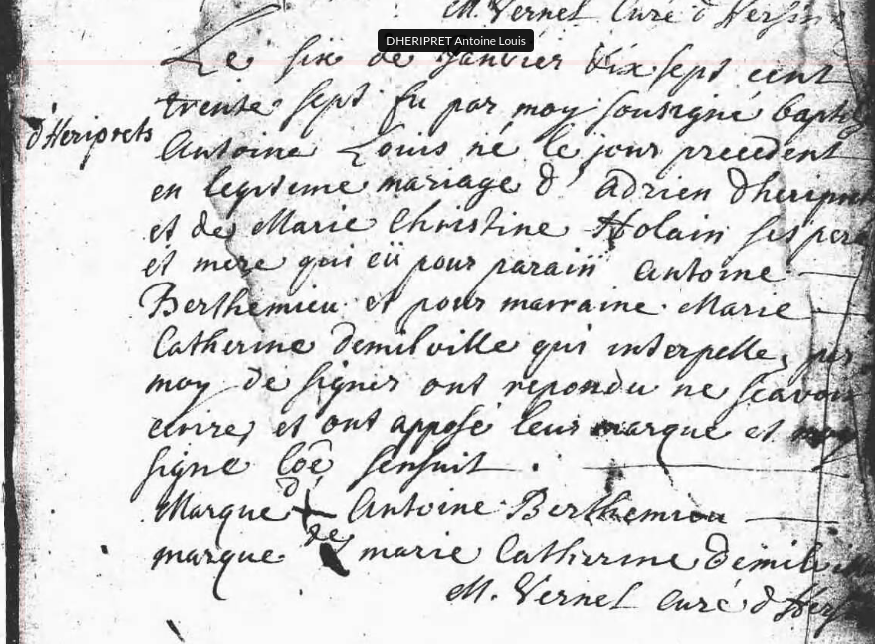 M. Vernel Curé d Hersin
DHERIPRET Antoine Louis
Le six de Janvier dix sept cent
trente sept fu par moy sousigné baptis
d'Heriprets
Antoine Louis né le jour precedent
en legitime mariage d' adrien dheripret
et de Marie Christine Holain ses pere
et mere qui eü pour parain Antoine
Berthemieu et pour marraine Marie
Catherine demilville qui interpellez par
moy de signer ont repondu ne scavoir
ecrire, et ont apposé leur marque et moy
signé coe sensuit .
Marque d' + Antoine Berthemieu
marque de marie Catherine demilville
M. Vernel curé d Hers